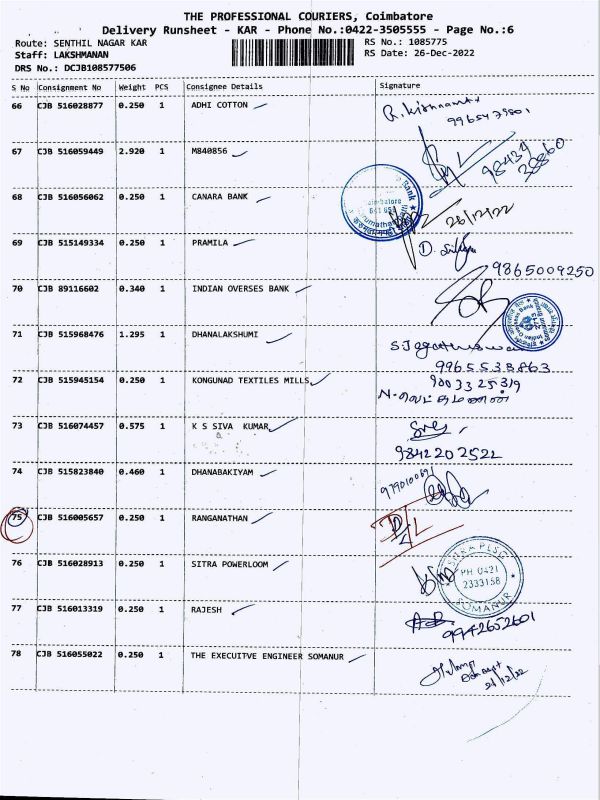 THE PROFESSIONAL COURIERS, Coimbatore
Delivery Runsheet - KAR - Phone No.:0422-3505555 - Page No.:6
Route: SENTHIL NAGAR KAR RS No.: 1085775
Staff: LAKSHMANAN RS Date: 26-Dec-2022
DRS No.: DCJB108577506
S No Consignment No Weight PCS Consignee Details Signature
66 CJB 516028877 0.250 1 ADHI COTTON
67 CJB 516059449 2.920 1 M840856
98434
38860
68 CJB 516056062 0.250 1 CANARA BANK
26/12/22
69 CJB 515149334 0.250 1 PRAMILA
9865009250
70 CJB 89116602 0.340 1 INDIAN OVERSES BANK
71 CJB 515968476 1.295 1 DHANALAKSHUMI
9965538863
72 CJB 515945154 0.250 1 KONGUNAD TEXTILES MILLS
9003325319
73 CJB 516074457 0.575 1 K S SIVA KUMAR
9842202522
74 CJB 515823840 0.460 1 DHANABAKIYAM
75 CJB 516005657 0.250 1 RANGANATHAN
D/L
76 CJB 516028913 0.250 1 SITRA POWERLOOM
PH 0421
2333158
SOMANUR
77 CJB 516013319 0.250 1 RAJESH
9942652601
78 CJB 516055022 0.250 1 THE EXECUITVE ENGINEER SOMANUR